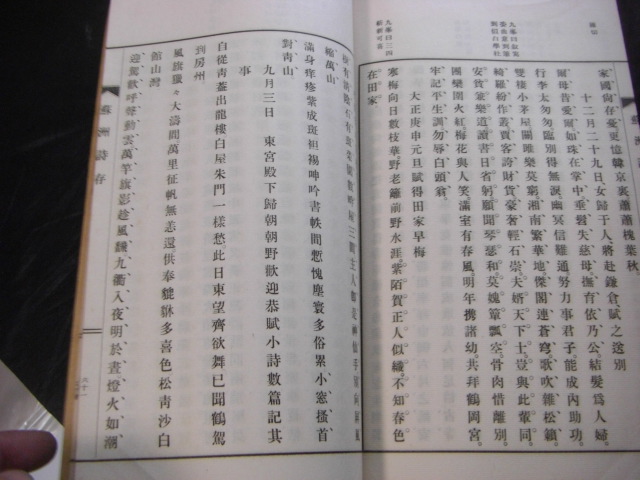 家國尚存憂更憶韓京裏蕭蕭槐葉秋
十二月二十九日女歸于人將赴鎌倉賦之送別
爾母皆愛爾如珠在掌中垂髫失慈母撫育依乃公結髮爲人婦
行李太匆匆臨別得無淚幽冥信難通努力事君子能成內助功
雙棲小茅屋關雎樂莫窮湘南繁華地傑閣連蒼穹歌吹雜松籟
綺羅紛作叢賈客誇財貨豪奢輕石崇夫婿天下士豈與此輩同
安貧兼樂道讀書日省躬願聞琴瑟和莫媿簞瓢空骨肉惜離別
團欒圍火紅梅花與人笑滿室有春風明年攜諸幼共拜鶴岡宮
牢記不生訓勿辱白頭翁
大正庚申元旦賦得田家早梅
寒梅向日數枝華野老籬前野水涯紫陌賀正人似織不知春色
在田家
綠萬山
滿身痒疹紫成斑袒裼呻吟書帙間慙愧塵寰多俗累小窓搔首
對靑山
九月三日東宮殿下歸朝朝野歡迎恭賦小詩數篇記其
事
自從靑蓋出龍樓白屋朱門一樣愁此日東望齊欲舞已聞鶴駕
到房州
風旗獵々大濤間萬里征帆無恙還供奉貔貅多喜色松靑沙白
館山灣
迎駕歡呼聲動雲萬竿旗影趁風飜九衢入夜明於晝燈火如潮